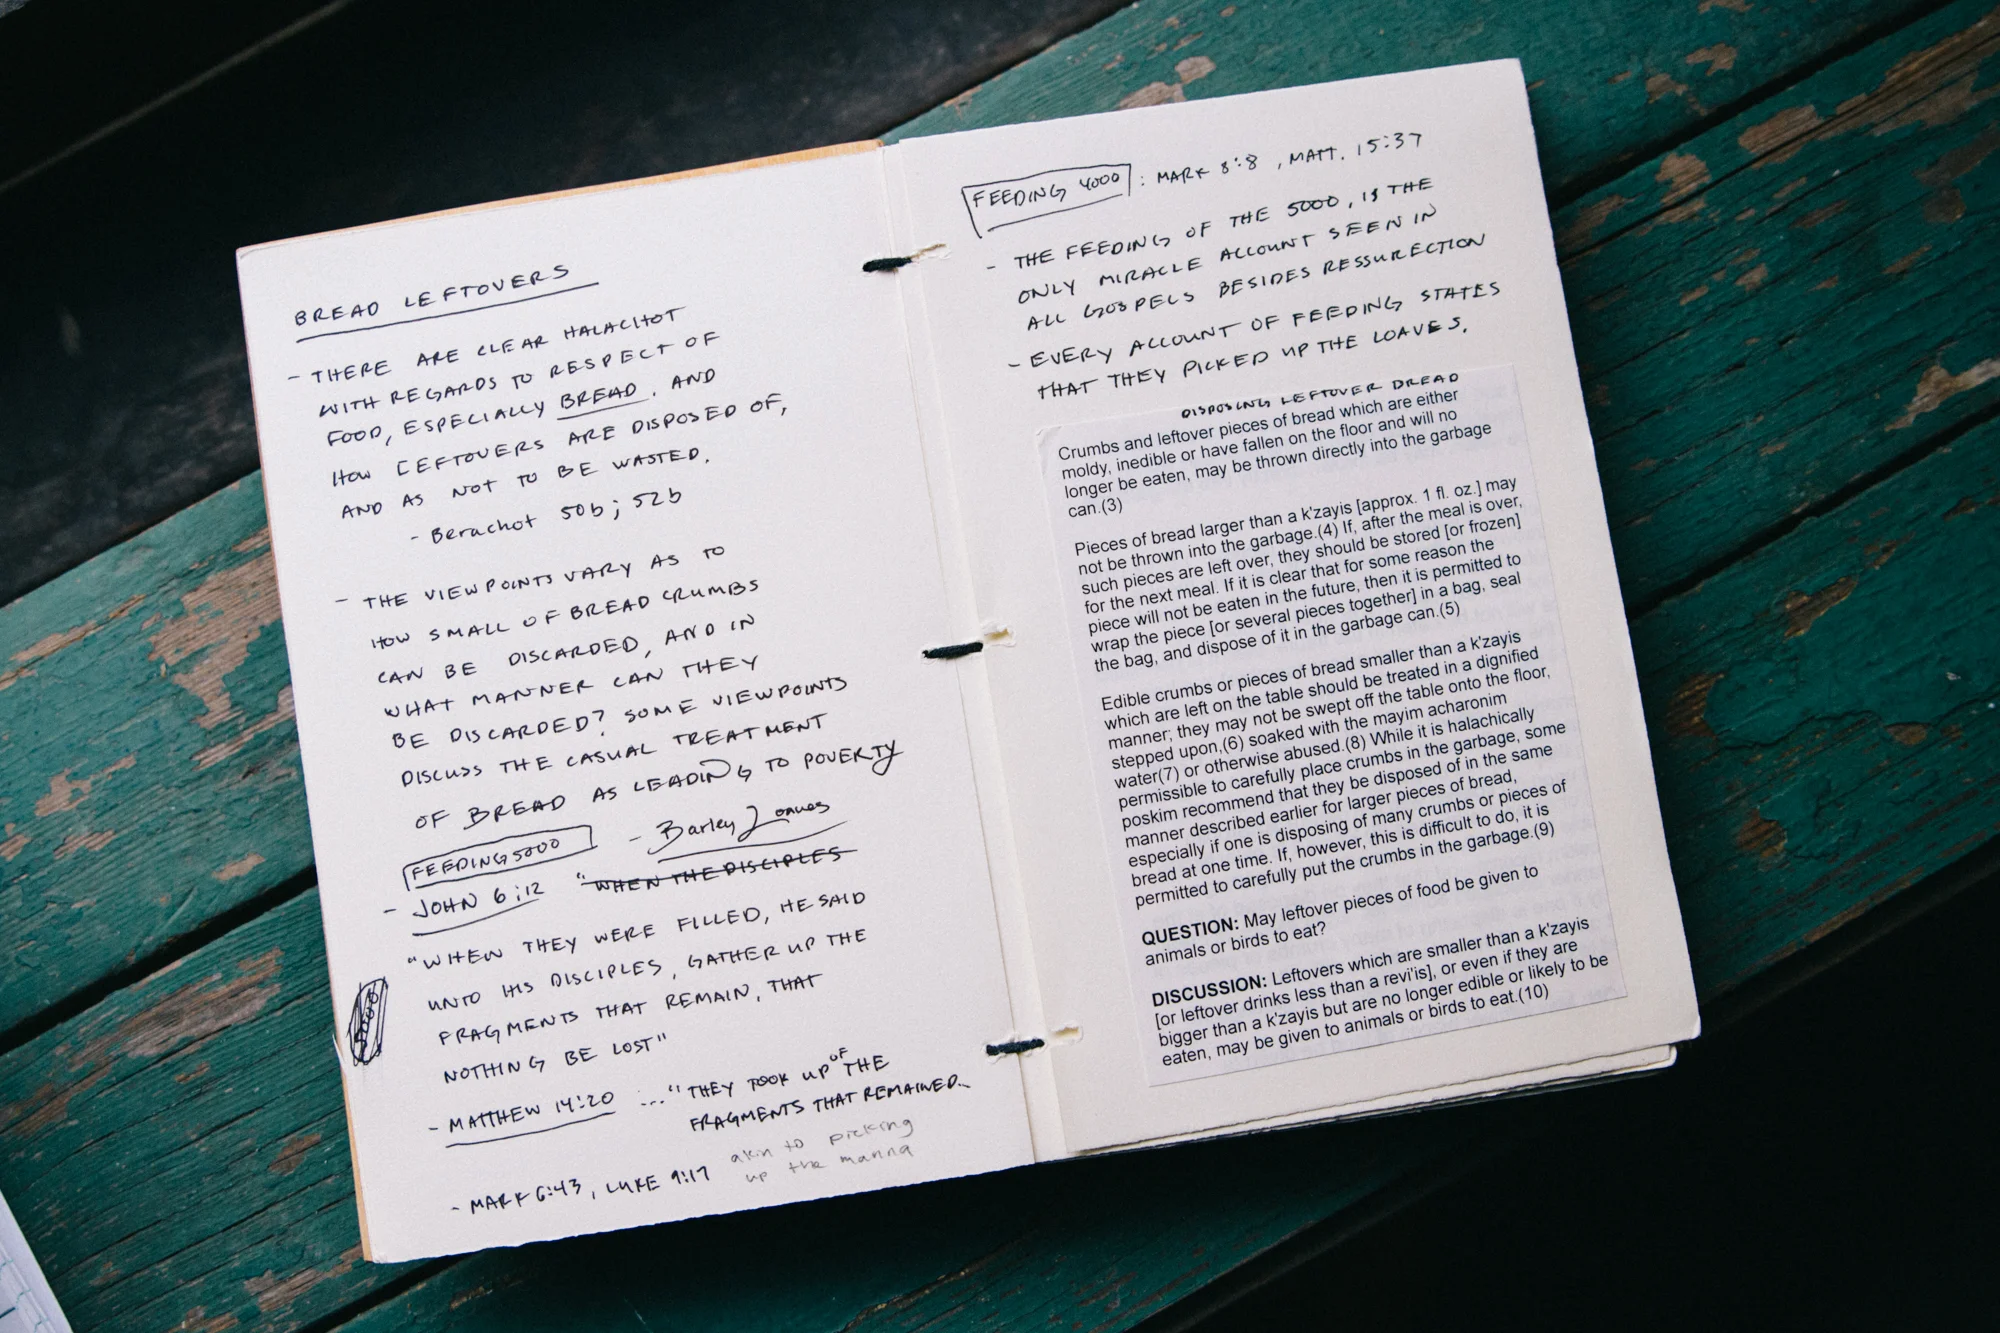 BREAD LEFTOVERS
- THERE ARE CLEAR HALACHOT
WITH REGARDS TO RESPECT OF
FOOD, ESPECIALLY BREAD. AND
HOW LEFTOVERS ARE DISPOSED OF,
AND AS NOT TO BE WASTED.
- Berachot 50b; 52b
- THE VIEWPOINTS VARY AS TO
HOW SMALL OF BREAD CRUMBS
CAN BE DISCARDED, AND IN
WHAT MANNER CAN THEY
BE DISCARDED? SOME VIEWPOINTS
DISCUSS THE CASUAL TREATMENT
OF BREAD AS LEADING TO POVERTY
FEEDING 5000 - Barley Loaves
- JOHN 6:12 "WHEN THE DISCIPLES
"WHEN THEY WERE FILLED, HE SAID
UNTO HIS DISCIPLES, GATHER UP THE
FRAGMENTS THAT REMAIN, THAT
NOTHING BE LOST"
- MATTHEW 14:20 ..."THEY TOOK UP OF THE
FRAGMENTS THAT REMAINED...
akin to picking
up the manna
- MARK 6:43, LUKE 9:17
FEEDING 4000 : MARK 8:8, MATT. 15:37
- THE FEEDING OF THE 5000, IS THE
ONLY MIRACLE ACCOUNT SEEN IN
ALL GOSPELS BESIDES RESSURECTION
- EVERY ACCOUNT OF FEEDING STATES
THAT THEY PICKED UP THE LOAVES.
DISPOSING LEFTOVER BREAD
Crumbs and leftover pieces of bread which are either
moldy, inedible or have fallen on the floor and will no
longer be eaten, may be thrown directly into the garbage
can.(3)
Pieces of bread larger than a k'zayis [approx. 1 fl. oz.] may
not be thrown into the garbage.(4) If, after the meal is over,
such pieces are left over, they should be stored [or frozen]
for the next meal. If it is clear that for some reason the
piece will not be eaten in the future, then it is permitted to
wrap the piece [or several pieces together] in a bag, seal
the bag, and dispose of it in the garbage can.(5)
Edible crumbs or pieces of bread smaller than a k'zayis
which are left on the table should be treated in a dignified
manner; they may not be swept off the table onto the floor,
stepped upon,(6) soaked with the mayim acharonim
water(7) or otherwise abused.(8) While it is halachically
permissible to carefully place crumbs in the garbage, some
poskim recommend that they be disposed of in the same
manner described earlier for larger pieces of bread,
especially if one is disposing of many crumbs or pieces of
bread at one time. If, however, this is difficult to do, it is
permitted to carefully put the crumbs in the garbage.(9)
QUESTION: May leftover pieces of food be given to
animals or birds to eat?
DISCUSSION: Leftovers which are smaller than a k'zayis
[or leftover drinks less than a revi'is], or even if they are
bigger than a k'zayis but are no longer edible or likely to be
eaten, may be given to animals or birds to eat.(10)